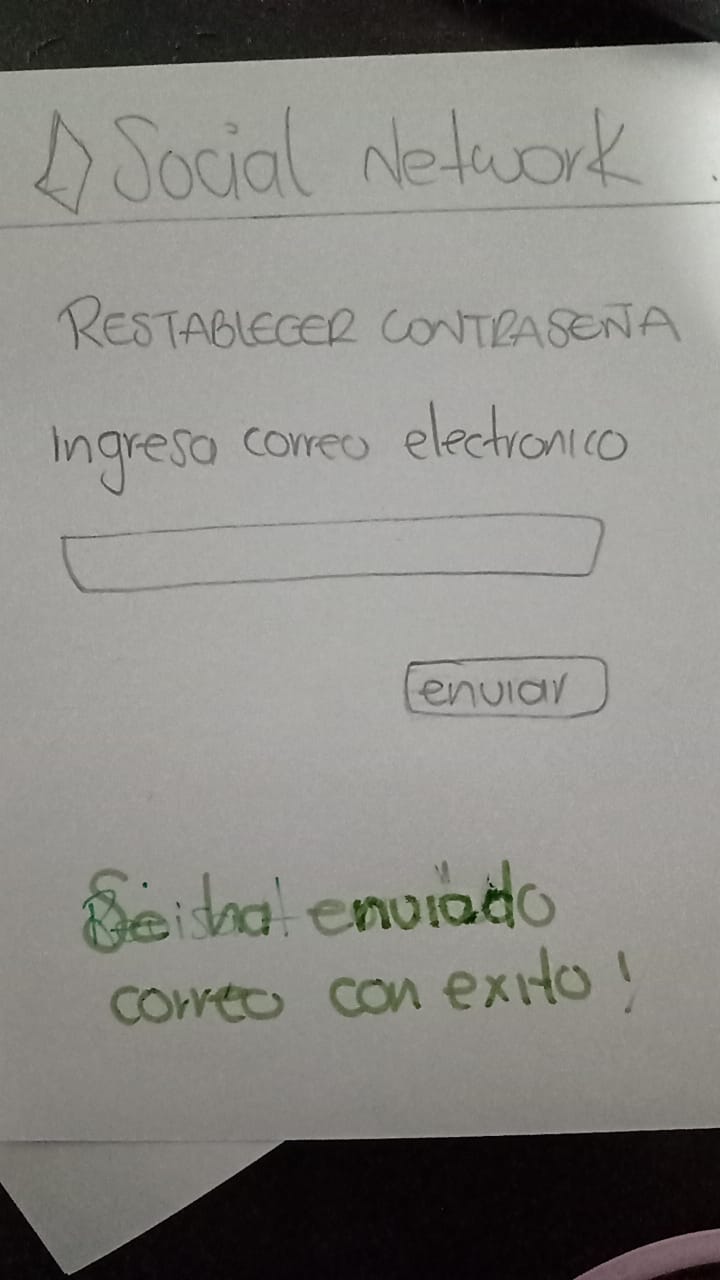 Social Network
RESTABLECER CONTRASEÑA
Ingresa correo electronico
enviar
Se ha enviado
correo con exito!